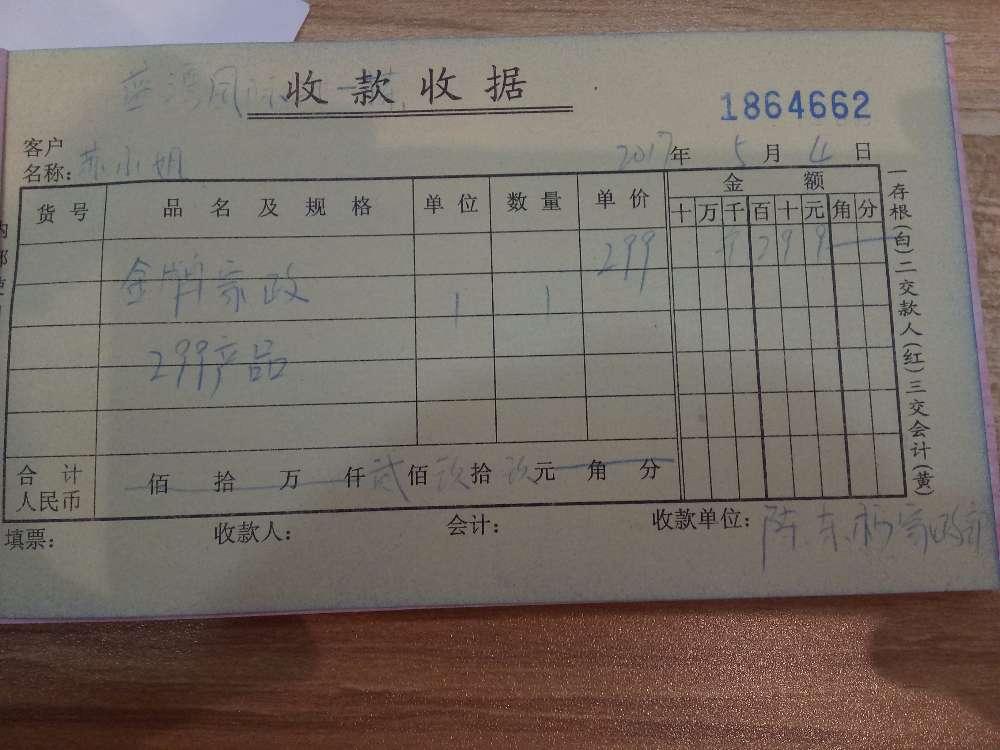 收款收据
1864662
客户
名称: 苏小姐 2017年 5月 4日
货号 品名及规格 单位 数量 单价 金额
十 万 千 百 十 元 角 分
299 299
金牌家政
1 1
299产品
合计
人民币 佰 拾 万 仟 贰 佰 玖 拾 玖 元 角 分
填票: 收款人: 会计: 收款单位:
一存根(白)二交款人(红)三交会计(黄)